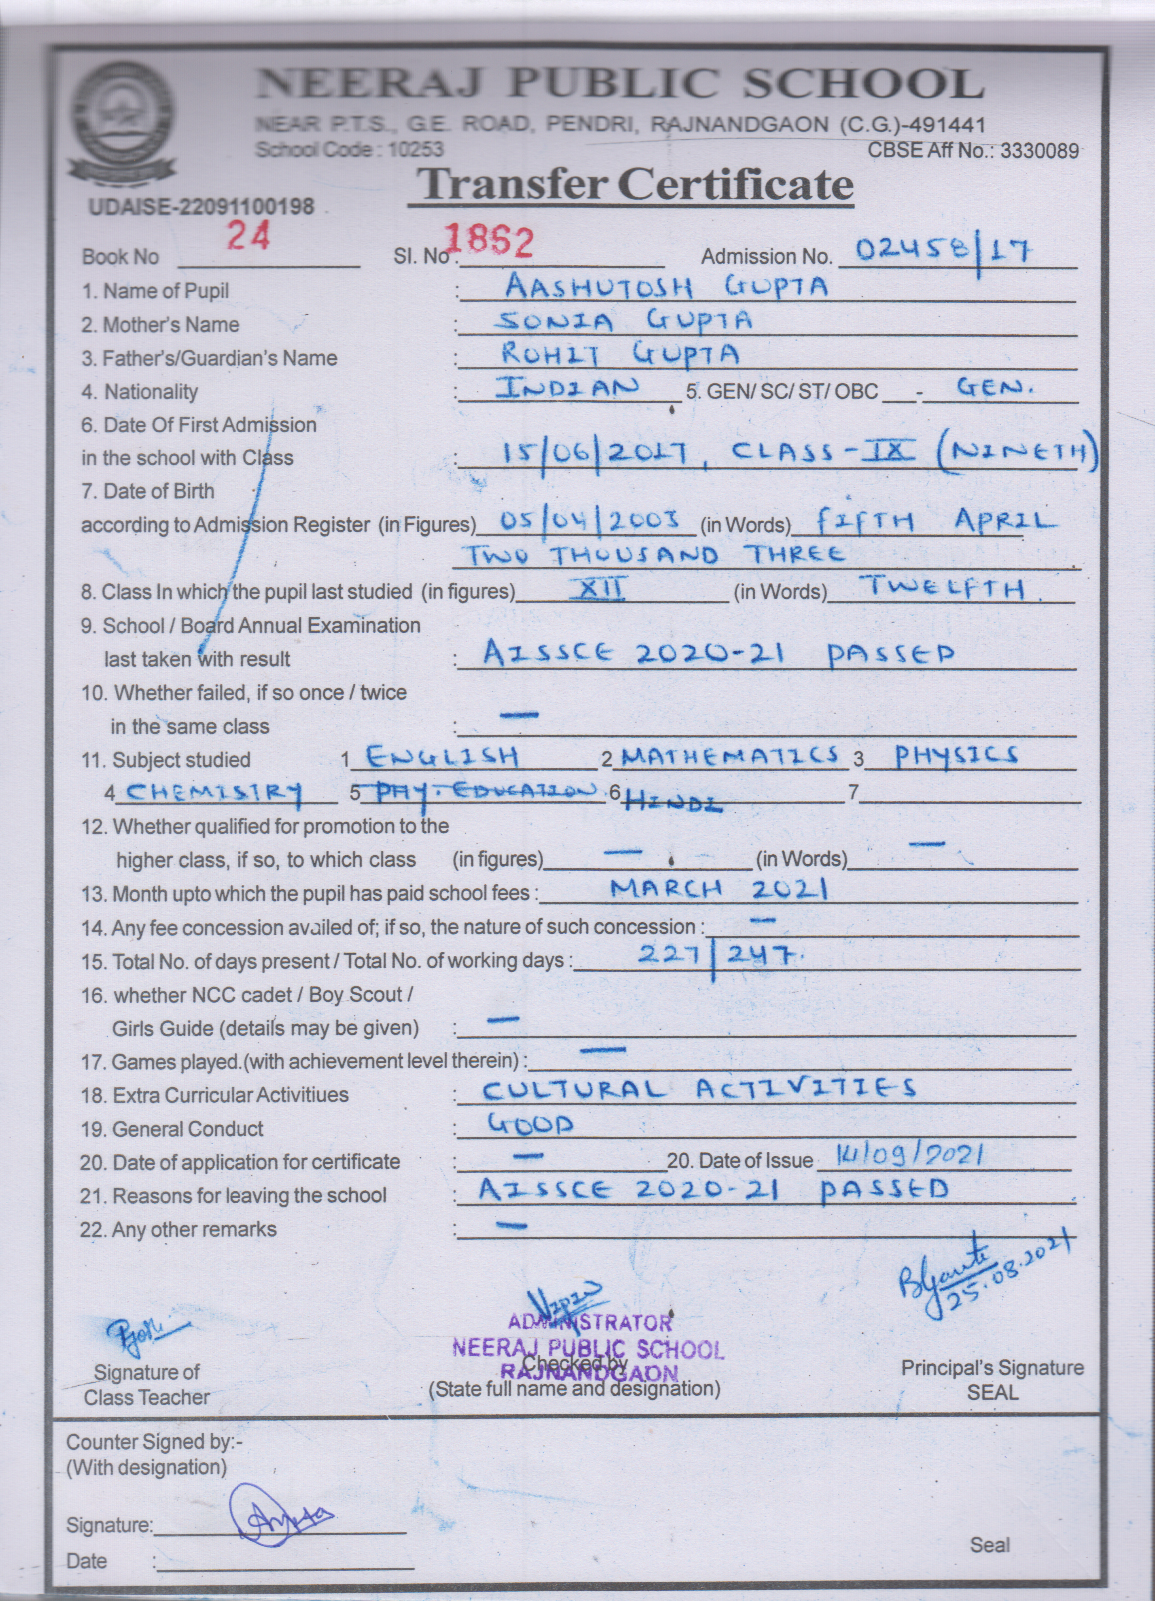 NEERAJ PUBLIC SCHOOL
NEAR P.T.S., G.E. ROAD, PENDRI, RAJNANDGAON (C.G.)-491441
School Code : 10253 CBSE Aff No.: 3330089
Transfer Certificate
UDAISE-22091100198
Book No 24 Sl. No. 1862 Admission No. 02458/17
1. Name of Pupil : AASHUTOSH GUPTA
2. Mother's Name : SONIA GUPTA
3. Father's/Guardian's Name : ROHIT GUPTA
4. Nationality : INDIAN 5. GEN/ SC/ ST/ OBC - GEN.
6. Date Of First Admission
in the school with Class : 15/06/2017, CLASS-IX (NINETH)
7. Date of Birth
according to Admission Register (in Figures) 05/04/2003 (in Words) FIFTH APRIL
TWO THOUSAND THREE
8. Class In which the pupil last studied (in figures) XII (in Words) TWELFTH.
9. School / Board Annual Examination
last taken with result : AISSCE 2020-21 PASSED
10. Whether failed, if so once / twice
in the same class : —
11. Subject studied 1 ENGLISH 2 MATHEMATICS 3 PHYSICS
4 CHEMISTRY 5 PHY. EDUCATION 6 HINDI 7
12. Whether qualified for promotion to the
higher class, if so, to which class (in figures) — (in Words) —
13. Month upto which the pupil has paid school fees : MARCH 2021
14. Any fee concession availed of; if so, the nature of such concession : —
15. Total No. of days present / Total No. of working days : 227/247.
16. whether NCC cadet / Boy Scout /
Girls Guide (details may be given) : —
17. Games played.(with achievement level therein) : —
18. Extra Curricular Activitiues : CULTURAL ACTIVITIES
19. General Conduct : GOOD
20. Date of application for certificate : — 20. Date of Issue 14/09/2021
21. Reasons for leaving the school : AISSCE 2020-21 PASSED
22. Any other remarks : —
25.08.2021
ADMINISTRATOR
NEERAJ PUBLIC SCHOOL
RAJNANDGAON
Signature of Checked by Principal's Signature
Class Teacher (State full name and designation) SEAL
Counter Signed by:-
(With designation)
Signature:
Seal
Date :